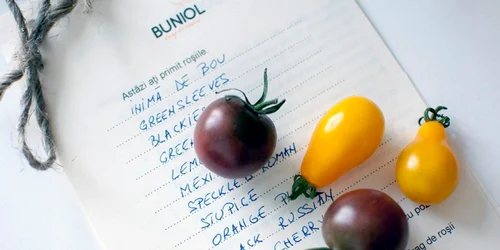 BUNIOL
Astăzi ați primit roșiile
INIMĂ DE BOU
GREENSLEEVES
BLACKIE
GREE
LEM
MEXI
SPECKLED ROMAN
STUPICE
ORANGE
ACK RUSSIAN
CHERR
cu po
ag de roșii